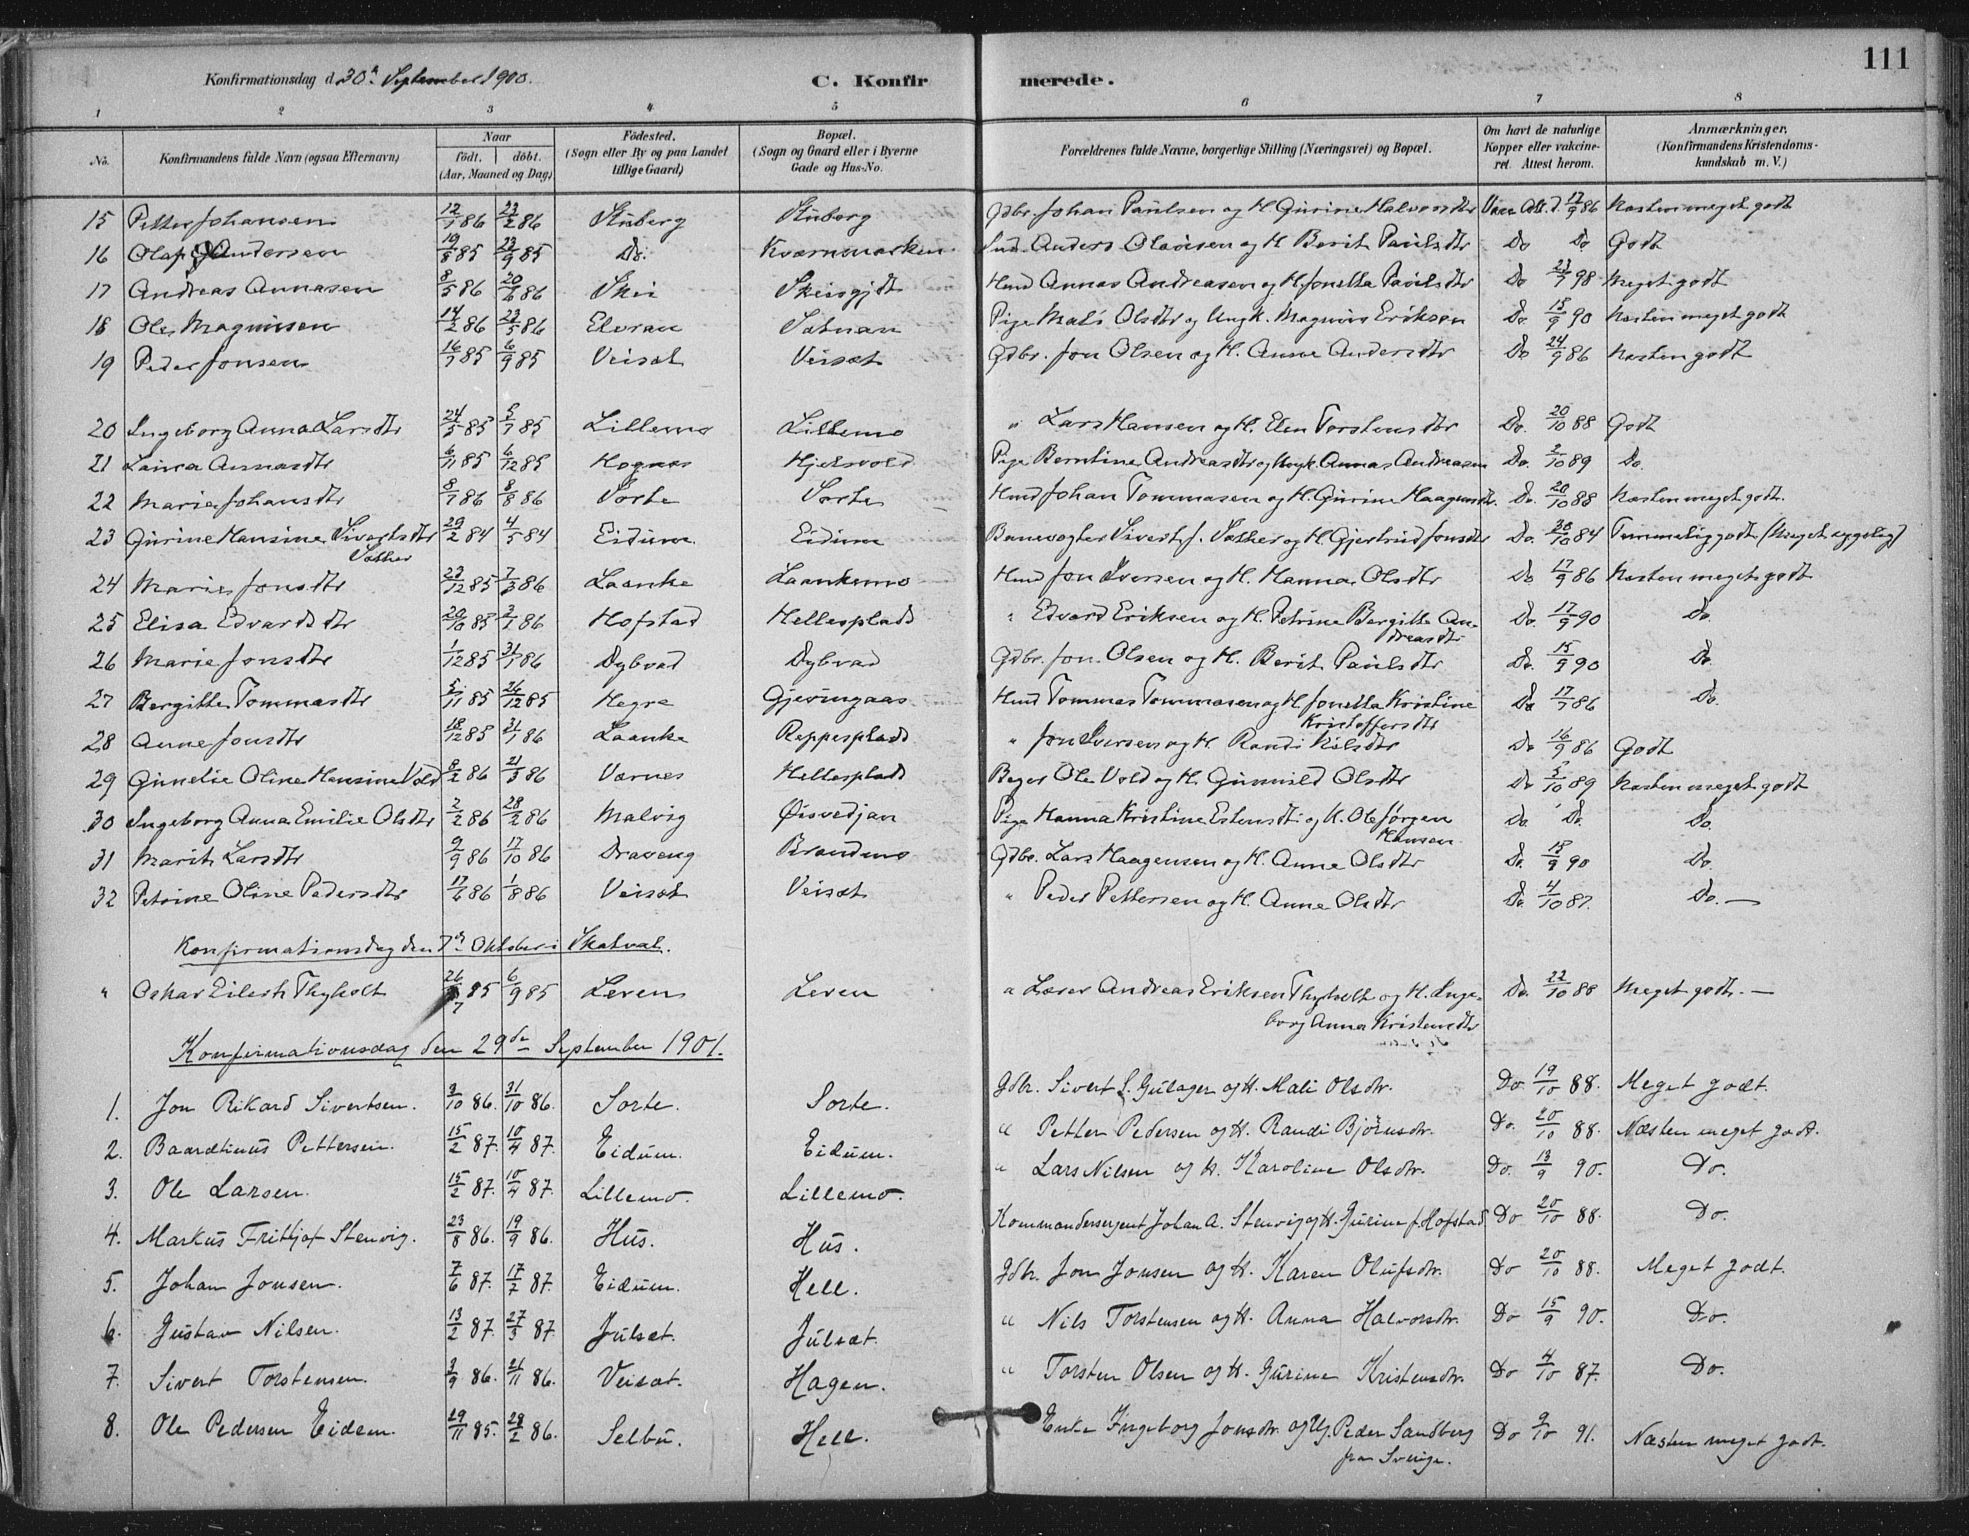 111
Konfirmationsdag d. 30te September 1900. C. Konfirmerede.
1 2 3 4 5 6 7 8
No. Konfirmandens fulde Navn (ogsaa Efternavn) Naar födt. döbt. (Aar, Maaned og Dag) Födested. (Sogn eller By og paa Landet tillige Gaard) Bopæl. (Sogn og Gaard eller i Byerne Gade og Hus-No. Forældrenes fulde Navne, borgerlige Stilling (Næringsvei) og Bopæl. Om havt de naturlige Kopper eller vakcineret. Attest herom. Anmærkninger. (Konfirmandens Kristendomskundskab m. V.)
15 Petter Johansen 12/1 86 22/2 86 Stuberg Stuberg Gdbr. Johan Paulsen og H. Gurine Halvorsdtr Vacc. Att. d. 17/9 86 Næsten meget godt
16 Olaf Andersen 19/8 85 23/9 85 Do. Kværnmarken Anders Olausen og H. Berit Paulsdtr Do Do Godt
17 Andreas Annasen 8/5 86 20/6 86 Skei Skeisgjdt Hmd Annas Andreasen og H. Jonetta Paulsdtr Do 23/7 98 Meget godt
18 Ole Magnusen 14/2 86 23/5 86 Elvran Sætnan Pige Mali Olsdtr og Ungk. Magnus Eriksen Do. 15/9 90 Næsten meget godt
19 Peder Jonsen 16/7 85 6/9 85 Veisæt Veisæt Gdbr. Jon Olsen og H. Anne Andersdtr Do 24/9 86 Næsten godt
20 Ingeborg Anna Larsdtr 24/5 85 5/7 85 Lillemo Lillemo " Lars Hansen og H. Elen Torstensdtr Do. 20/10 88 Godt
21 Laura Annasdtr 6/11 85 6/12 85 Hognes Hjelsvold Pige Berntine Andreasdtr og Ungk. Annas Andreasen Do. 2/10 89 Do.
22 Marie Johansdtr 8/7 86 8/8 86 Sorte Sorte Hmd Johan Tommasen og H. Gurine Haagensdtr. Do. 20/10 88 Næsten meget godt.
23 Gurine Hansine Sivertsdtr 29/2 84 4/5 84 Eidum Eidum Banevogter Sivert J. Vather og H. Gjertrud Jonsdtr Do. 30/10 84 Temmelig godt (Meget sygelig)
Vather
24 Marie Jonsdtr 23/12 85 7/3 86 Laanke Laankemo Hmd Jon Iversen og H. Hanna Olsdtr Do 17/9 86 Næsten meget godt
25 Elisa Edvardsdtr 20/10 85 3/1 86 Hofstad Hellesplads " Edvard Eriksen og H. Petrine Bergitte An- Do. 17/9 90 Do.
dreasdtr
26 Marie Jonsdtr 1/12 85 31/1 86 Dybvad Dybvad Gdbr. Jon Olsen og H. Berit Paulsdtr Do. 15/9 90 Do.
27 Bergitte Tommasdtr 5/11 85 26/12 85 Hegre Gjevingaas Hmd Tommas Tommasen og H. Jonetta Kristine Do 17/7 86 Do.
Kristoffersdtr
28 Anne Jonsdtr 18/12 85 31/1 86 Laanke Reppesplads " Jon Iversen og H. Randi Nilsdtr Do 16/9 86 Godt
29 Gunelie Oline Hansine Vold 8/2 86 21/3 86 Værnes Hellesplads Bager Ole Vold og H. Gunnild Olsdtr Do 2/10 89 Næsten meget godt
30 Ingeborg Anna Emilie Olsdtr 2/2 86 28/2 86 Malvig Øisvedjan Pige Hanna Kristine Estensdtr og K. Ole Jørgen Do. Do. Do.
Hansen
31 Marit Larsdtr 9/9 86 17/10 86 Draveng Brandmo Gdbr. Lars Haagensen og H. Anne Olsdtr Do. 18/9 90 Do.
32 Petrine Oline Pedersdtr 17/6 86 1/8 86 Veisæt Veisæt " Peder Pettersen og H. Anne Olsdtr Do. 4/10 87. Do.
Konfirmationsdag den 7de Oktober i Skatval.
" Oskar Eilert Thyholt 26/7 85 6/9 85 Leren Leren " Lærer Andreas Eriksen Thyholt og H. Inge- Do. 22/10 88 Meget godt.
borg Anna Kristensdtr
Konfirmationsdag den 29de September 1901.
1. Jon Rikard Sivertsen. 3/10 86. 31/10 86. Sorte. Sorte. Gdbr. Sivert S. Gulager og H. Mali Olsdtr. Do. 19/10 88. Meget godt.
2. Baardtinus Pettersen. 15/2 87. 10/4 87. Eidum. Eidum. " Petter Pedersen og H. Randi Bjørnsdtr. Do. 20/10 88. Næsten meget godt.
3. Ole Larsen. 15/2 87. 10/4 87. Lillemo. Lillemo. " Lars Nilsen og H. Karoline Olsdtr. Do. 13/9 90. Do.
4. Markus Fritjof Stenvig. 23/8 86. 19/9 86. Hus. Hus. Kommandersergent Johan A. Stenvig og H. Gurine f. Hofstad Do 20/10 88. Do.
5. Johan Jonsen. 7/6 87. 17/7 87. Eidum. Hell. Gdbr. Jon Jonsen og H. Karen Olufsdtr. Do 20/10 88. Meget godt.
6. Gustav Nilsen. 13/2 87. 27/3 87. Julsæt. Julsæt. " Nils Torstensen og H. Anna Halvorsdtr. Do 15/9 90. Do.
7. Sivert Torstensen. 3/9 86. 21/11 86. Veisæt. Hagen. " Torsten Olsen og H. Gurine Kristensdtr. Do 4/10 87. Do.
8. Ole Pedersen Eidem. 29/11 85. 28/2 86. Selbu. Hell. Enke Ingeborg Jonsdtr. og Ug. Peder Sandberg Do 9/10 91. Næsten meget godt.
fra Sverige.